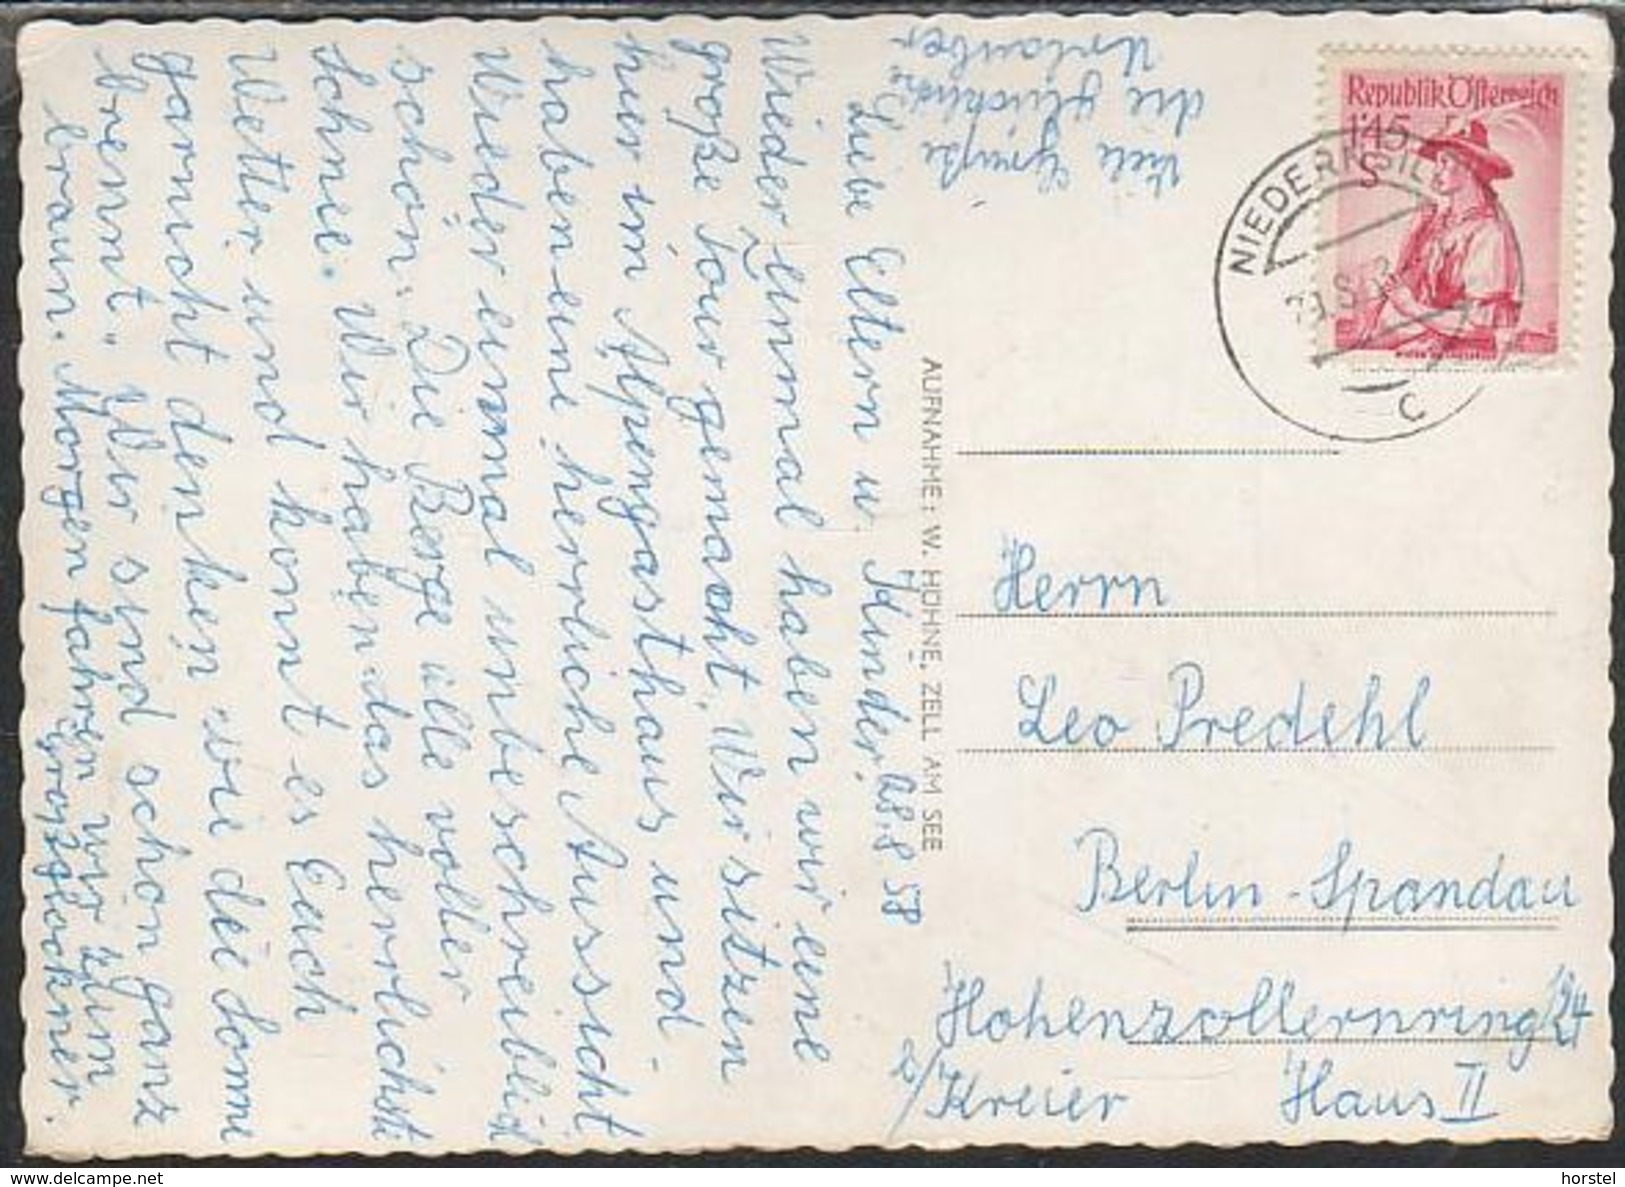 Liebe Eltern u. Kinder! 28.8.58
Wieder einmal haben wir eine
große Tour gemacht. Wir sitzen
hier im Alpengasthaus und
haben eine herrliche Aussicht.
Wieder einmal unbeschreiblich
schön. Die Berge alle voller
Schnee. Wir haben das herrlichste
Wetter und könnt es Euch
garnicht denken wie die Sonne
brennt. Wir sind schon ganz
braun. Morgen fahren wir zum
Großglockner.
Viele Grüße
die glücklichen
Urlauber.
AUFNAHME: W. HÖHNE, ZELL AM SEE
Republik Österreich
1·45
S
NIEDERNSILL
29. 8.
C
Herrn
Leo Predehl
Berlin-Spandau
Hohenzollernring 124
b/Kreier Haus II
delcampe.net
horstel